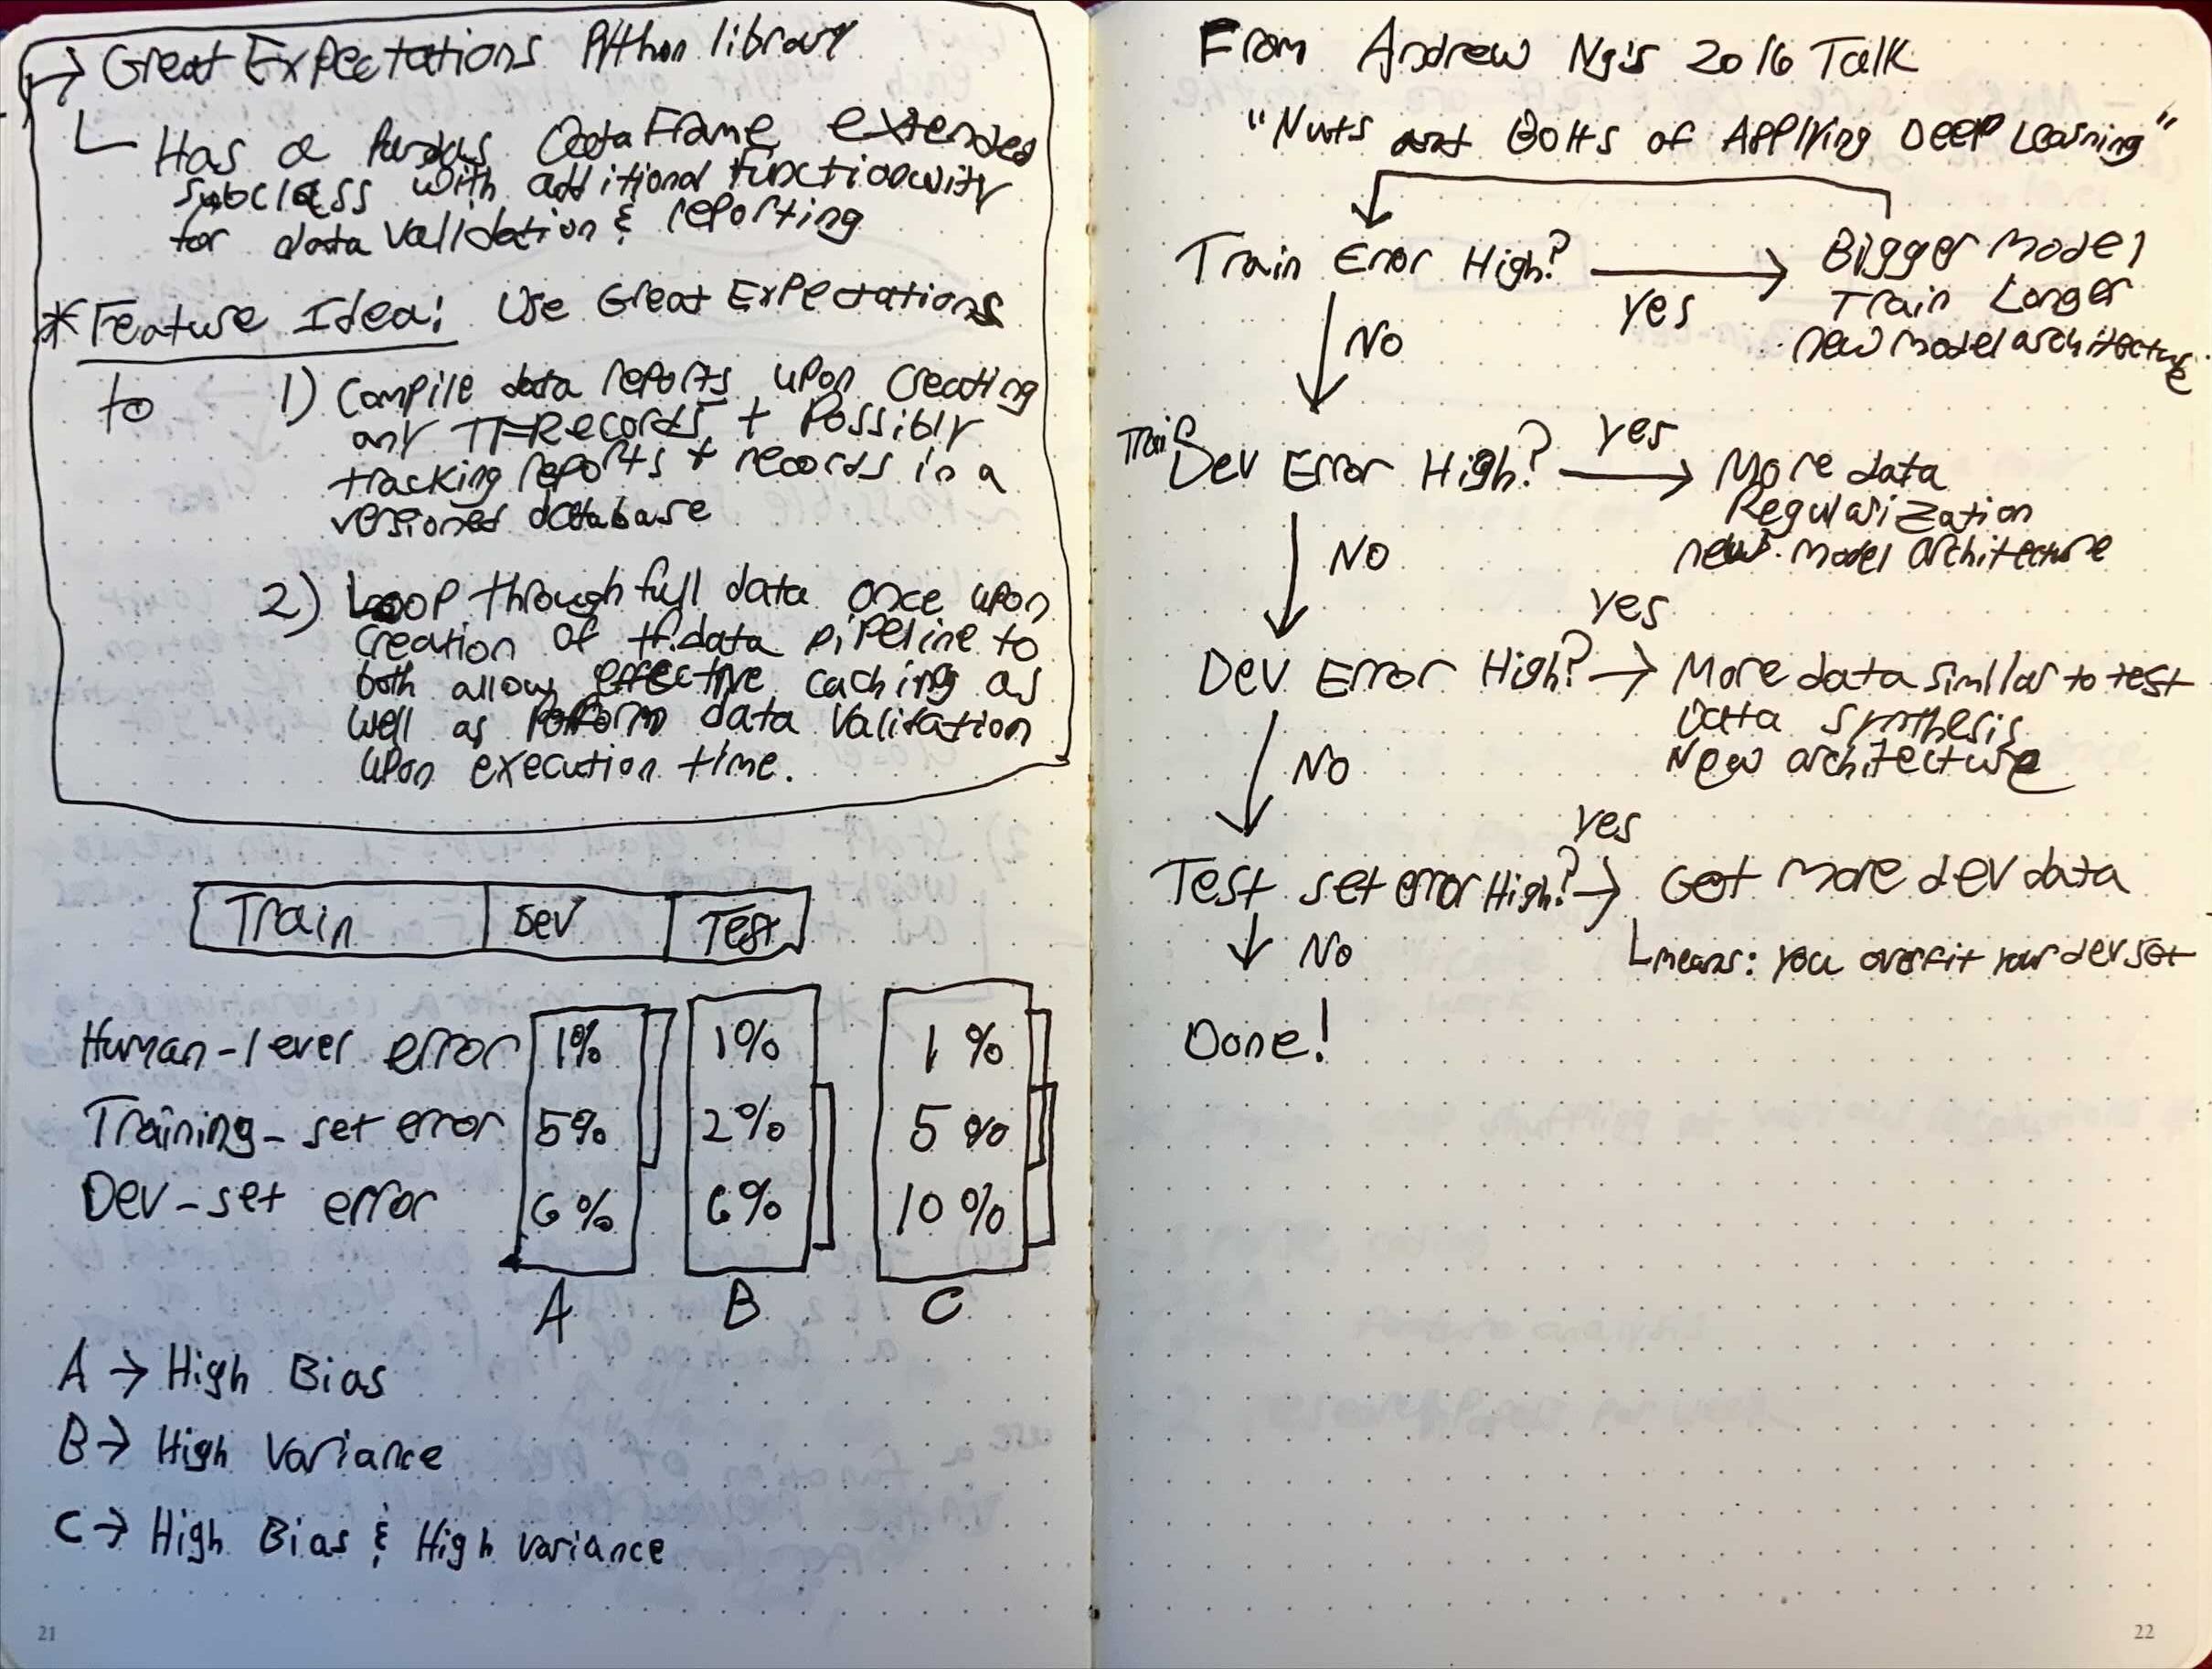 → Great Expectations Python library
Has a Pandas DataFrame extended
subclass with additional functionality
for data validation & reporting
* Feature Idea: Use Great Expectations
to 1) Compile data reports upon creating
any TFRecords + Possibly
tracking reports + records in a
versioned database
2) Loop through full data once upon
creation of tf.data pipeline to
both allow effective caching as
well as perform data validation
upon execution time.
Train Dev Test
Human-level error 1% 1% 1%
Training-set error 5% 2% 5%
Dev-set error 6% 6% 10%
A B C
A → High Bias
B → High Variance
C → High Bias & High variance
21
From Andrew Ng's 2016 Talk
"Nuts and Bolts of Applying Deep Learning"
Train Error High? yes → Bigger model
Train Longer
new model architecture
No
Train Dev Error High? yes → More data
Regularization
new model architecture
No
Dev Error High? yes → More data similar to test
Data synthesis
New architecture
No
Test set error High? yes → Get more dev data
means: you overfit your dev set
No
Done!
22